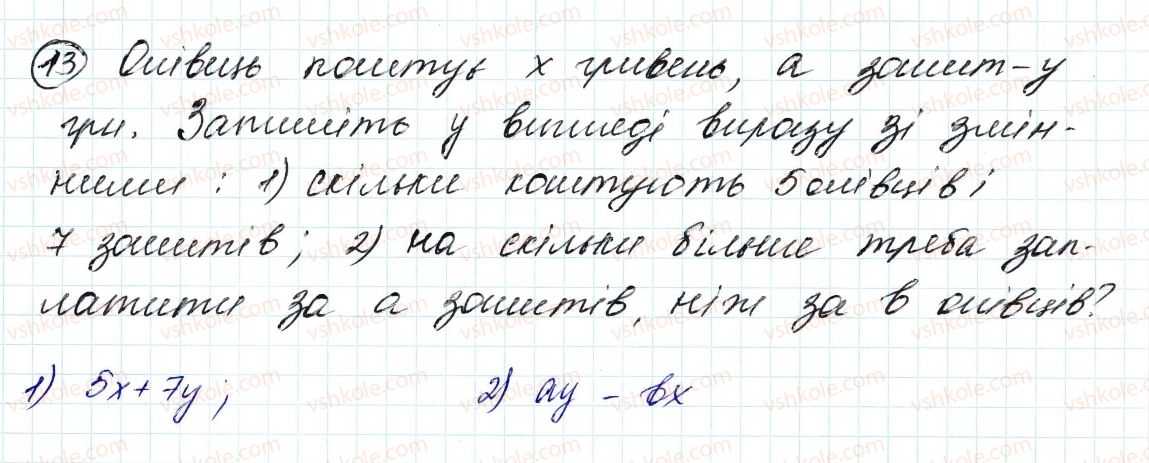 13 Олівець коштує х гривень, а зошит - у
грн. Запишіть у вигляді виразу зі змін-
ними : 1) скільки коштують 5 олівців і
7 зошитів; 2) на скільки більше треба зап-
латити за а зошитів, ніж за в олівців?
1) 5х + 7у ; 2) ау - вх